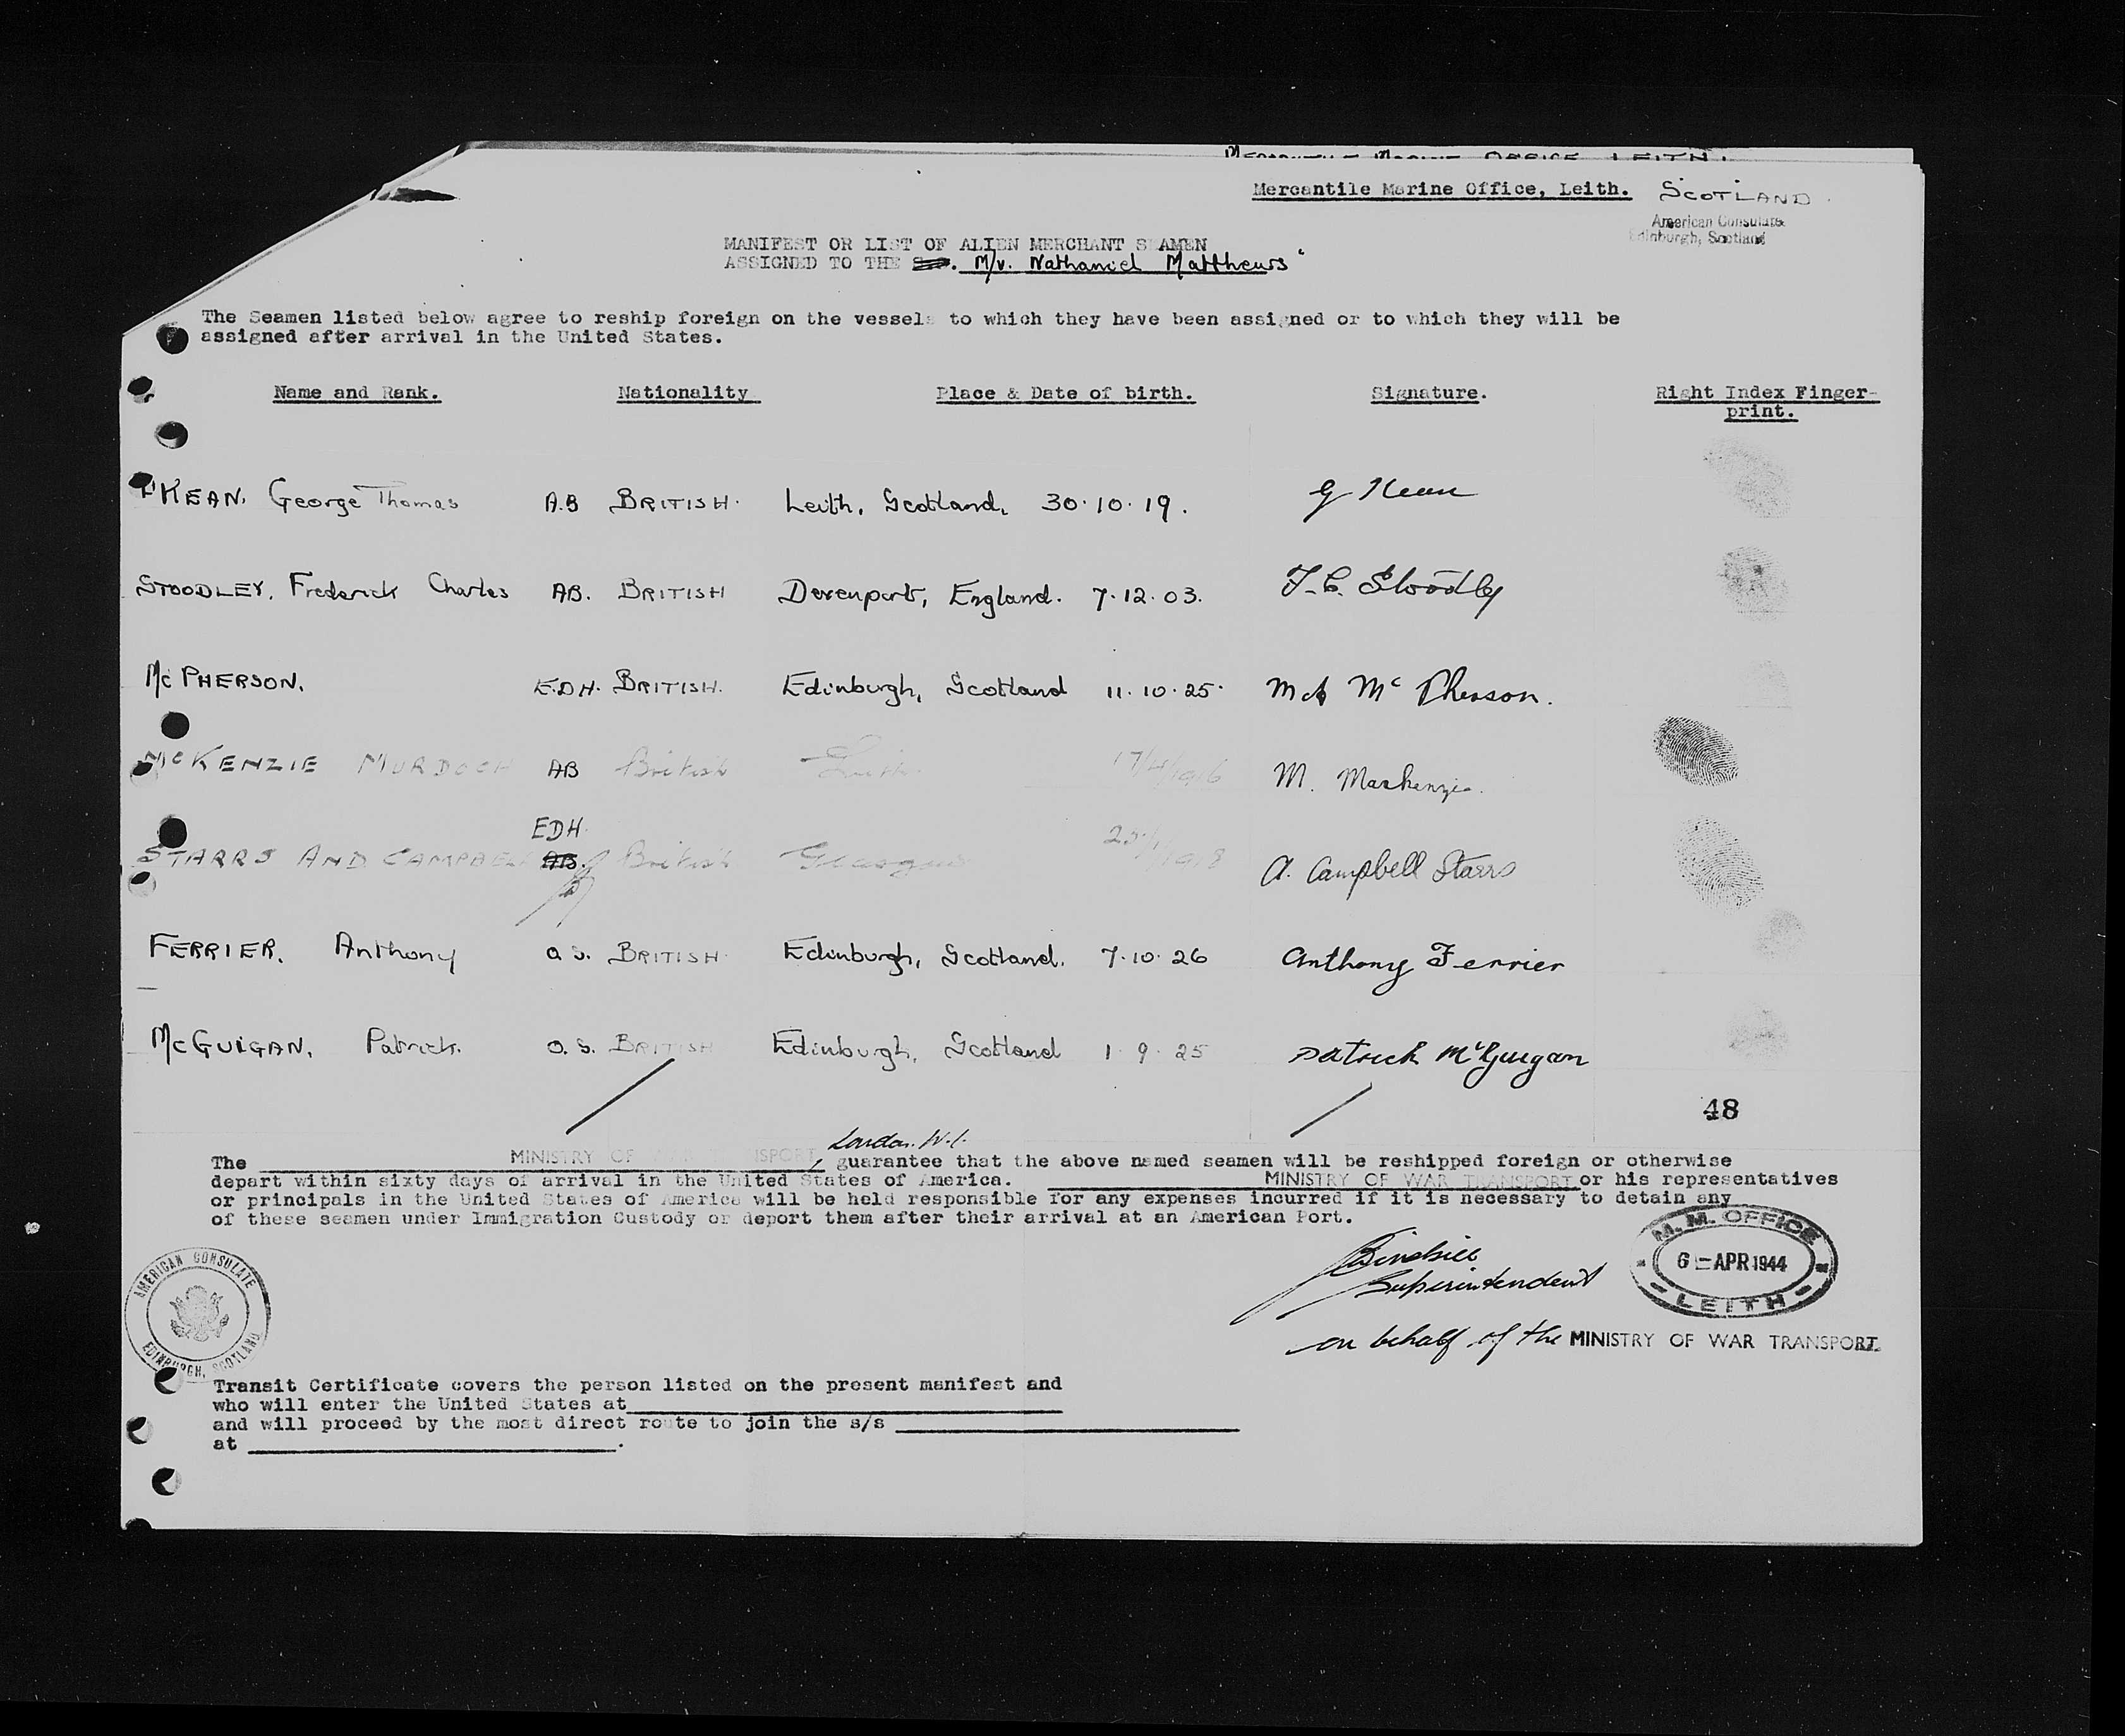 MERCANTILE MARINE OFFICE LEITH.
Mercantile Marine Office, Leith. SCOTLAND.
American Consulate
Edinburgh, Scotland
MANIFEST OR LIST OF ALIEN MERCHANT SEAMEN
ASSIGNED TO THE M/v. Nathaniel Matthews"
The Seamen listed below agree to reship foreign on the vessels to which they have been assigned or to which they will be
assigned after arrival in the United States.
Name and Rank. Nationality Place & Date of birth. Signature. Right Index Finger-
print.
KEAN. George Thomas A.B BRITISH. Leith, Scotland, 30.10.19. G Kean
STOODLEY. Frederick Charles AB. BRITISH Devenport, England. 7.12.03. F.C. Stoodley
McPHERSON. E.D.H. BRITISH. Edinburgh, Scotland 11.10.25. McPherson.
McKENZIE MURDOCH AB British Leith 17/4/1916 M. Mackenzie.
EDH
STARRS AND CAMPBELL AB. British Glasgow A. Campbell Starrs
FERRIER. Anthony O S. BRITISH Edinburgh, Scotland. 7.10.26 Anthony Ferrier
McGUIGAN. Patrick. O. S. BRITISH Edinburgh, Scotland 1.9.25 Patrick McGuigan
48
London. W.1.
The MINISTRY OF WAR TRANSPORT, guarantee that the above named seamen will be reshipped foreign or otherwise
depart within sixty days of arrival in the United States of America. MINISTRY OF WAR TRANSPORT or his representatives
or principals in the United States of America will be held responsible for any expenses incurred if it is necessary to detain any
of these seamen under Immigration Custody or deport them after their arrival at an American Port.
M. M. OFFICE
6 - APR 1944
LEITH
Superintendent
on behalf of the MINISTRY OF WAR TRANSPORT.
AMERICAN CONSULATE
EDINBURGH, SCOTLAND
Transit Certificate covers the person listed on the present manifest and
who will enter the United States at
and will proceed by the most direct route to join the s/s
at .